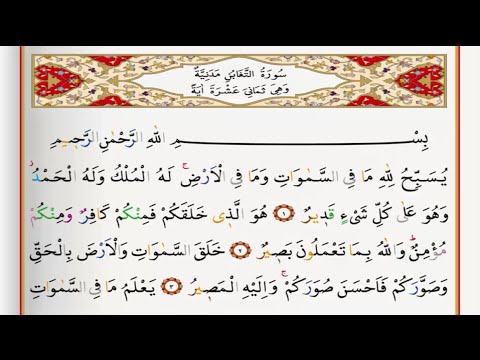 سُورَةُ التَّغَابُنِ مَدَنِيَّةٌ
وَهِيَ ثَمَانِيَ عَشْرَةَ اٰيَةً
بِسْمِ اللّٰهِ الرَّحْمٰنِ الرَّحِيمِ
يُسَبِّحُ لِلّٰهِ مَا فِي السَّمٰوَاتِ وَمَا فِي الْاَرْضِۚ لَهُ الْمُلْكُ وَلَهُ الْحَمْدُۘ
وَهُوَ عَلٰى كُلِّ شَيْءٍ قَدِيرٌ ﴿١﴾ هُوَ الَّذِي خَلَقَكُمْ فَمِنْكُمْ كَافِرٌ وَمِنْكُمْ
مُؤْمِنٌۜ وَاللّٰهُ بِمَا تَعْمَلُونَ بَصِيرٌ ﴿٢﴾ خَلَقَ السَّمٰوَاتِ وَالْاَرْضَ بِالْحَقِّ
وَصَوَّرَكُمْ فَاَحْسَنَ صُوَرَكُمْۚ وَاِلَيْهِ الْمَصِيرُ ﴿٣﴾ يَعْلَمُ مَا فِي السَّمٰوَاتِ